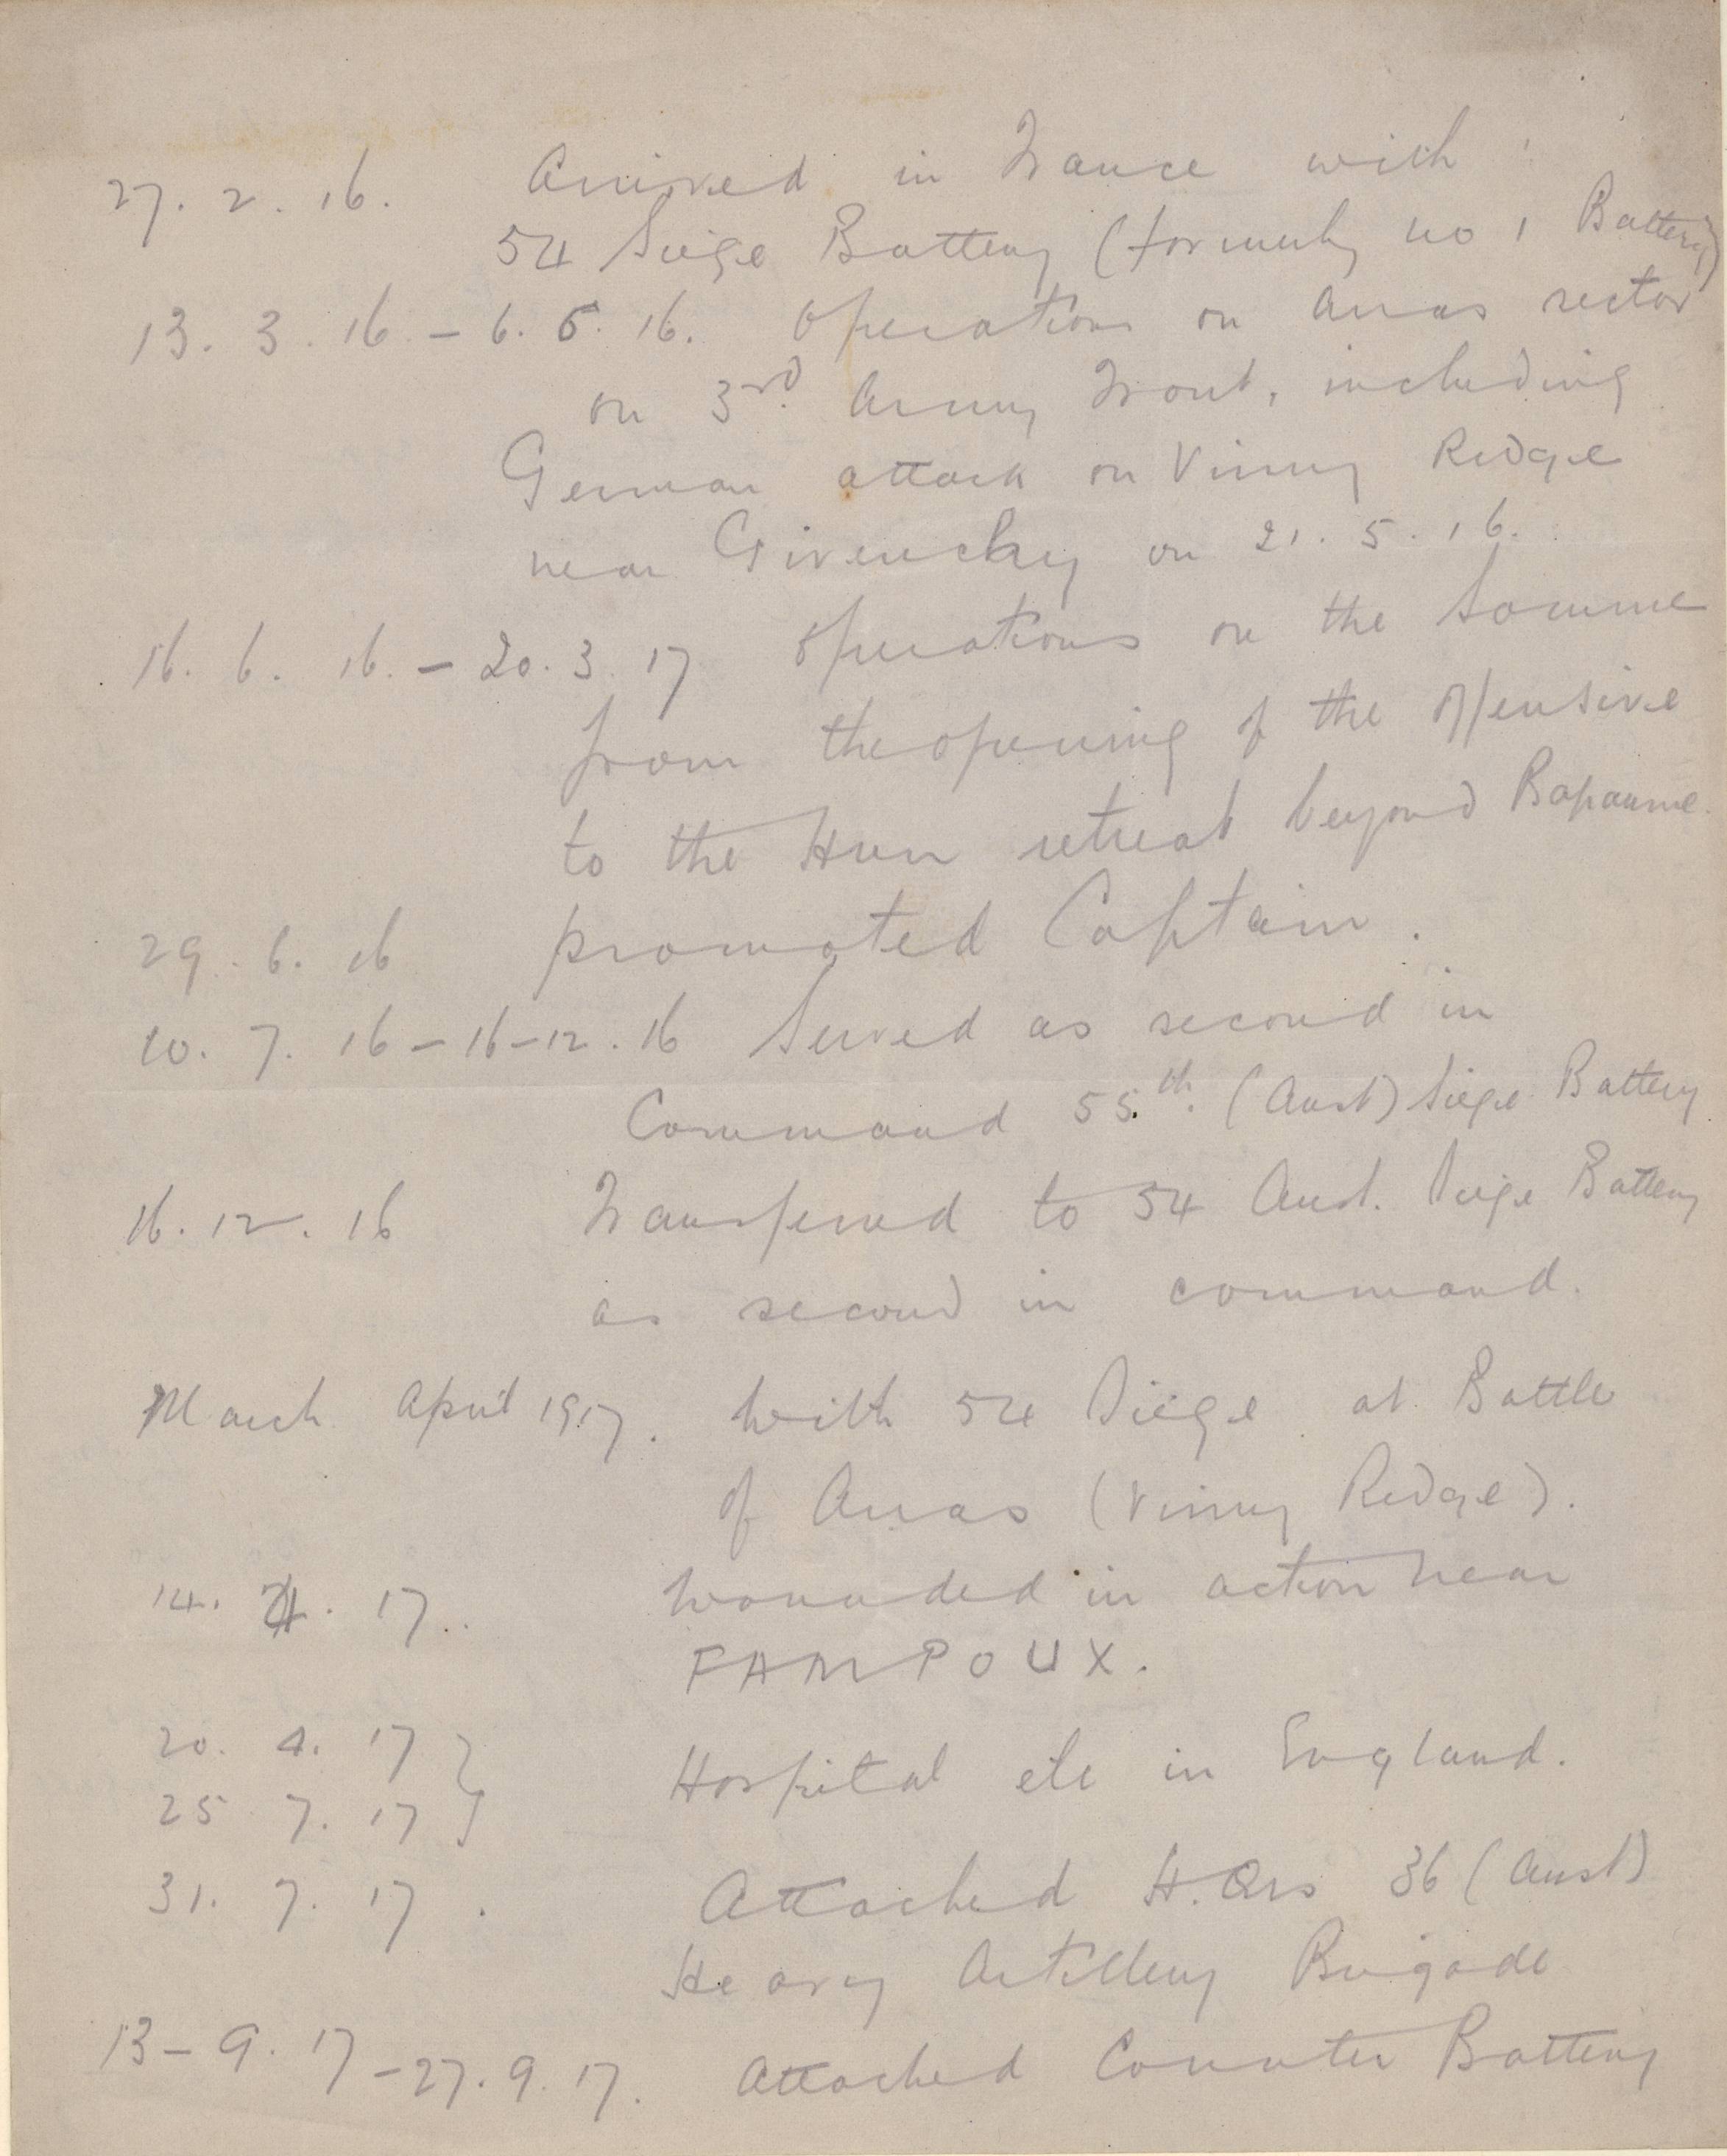 27. 2. 16. Arrived in France with
54 Siege Battery (formerly no 1 Battery)
13. 3. 16 - 6. 6. 16. Operations on Arras sector
on 3rd Army Front, including
German attack on Vimy Ridge
near Givenchy on 21. 5. 16.
16. 6. 16. - 20. 3. 17 Operations on the Somme
from the opening of the offensive
to the Hun retreat beyond Bapaume.
29. 6. 16 promoted Captain.
10. 7. 16 - 16-12. 16 Served as second in
Command 55th. (Aust) Siege Battery
16. 12. 16 Transferred to 54 Aust. Siege Battery
as second in command.
March April 1917. With 54 Siege at Battle
of Arras (Vimy Ridge).
14. 4. 17. Wounded in action near
FAMPOUX.
20. 4. 17 }
25 7. 17 } Hospital etc in England.
31. 7. 17. Attached H.Qrs 36 (Aust)
Heavy Artillery Brigade
13-9. 17 - 27. 9. 17. Attached Counter Battery